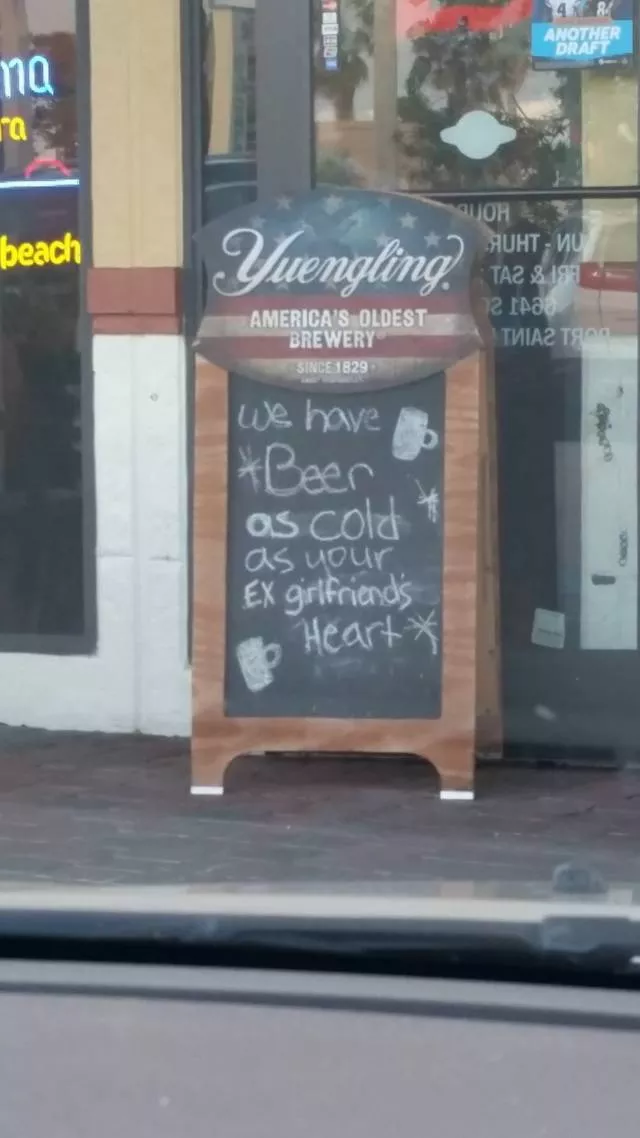 ma
ra
beach
ANOTHER
DRAFT
HOURS
SUN - THUR
FRI & SAT
6641 S
PORT SAINT
Yuengling
AMERICA'S OLDEST
BREWERY
SINCE 1829
we have
*Beer
as cold
as your
EX girlfriend's
Heart*